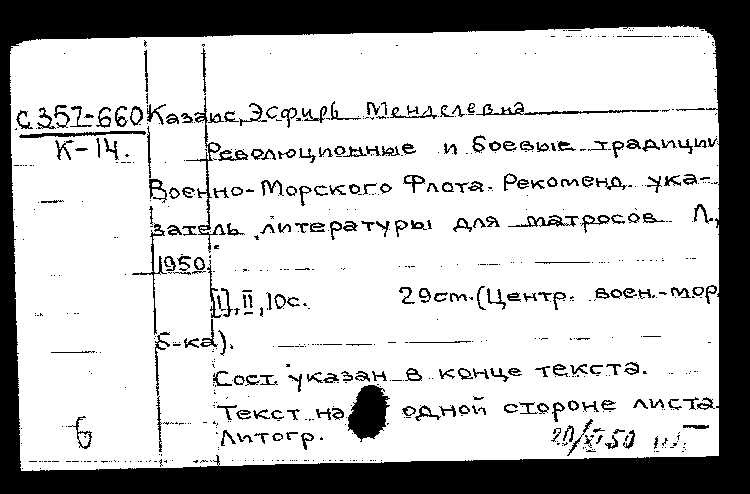 С357-660 Казаис, Эсфирь Менделевна
К-14. Революционные и боевые традиции
Военно-Морского Флота. Рекоменд. ука-
затель литературы для матросов Л.,
1950.
[I], II, 10с. 29cm. (Центр. воен.-мор.
б-ка).
Сост. указан в конце текста.
Текст на одной стороне листа.
б Литогр. 20/XI 50